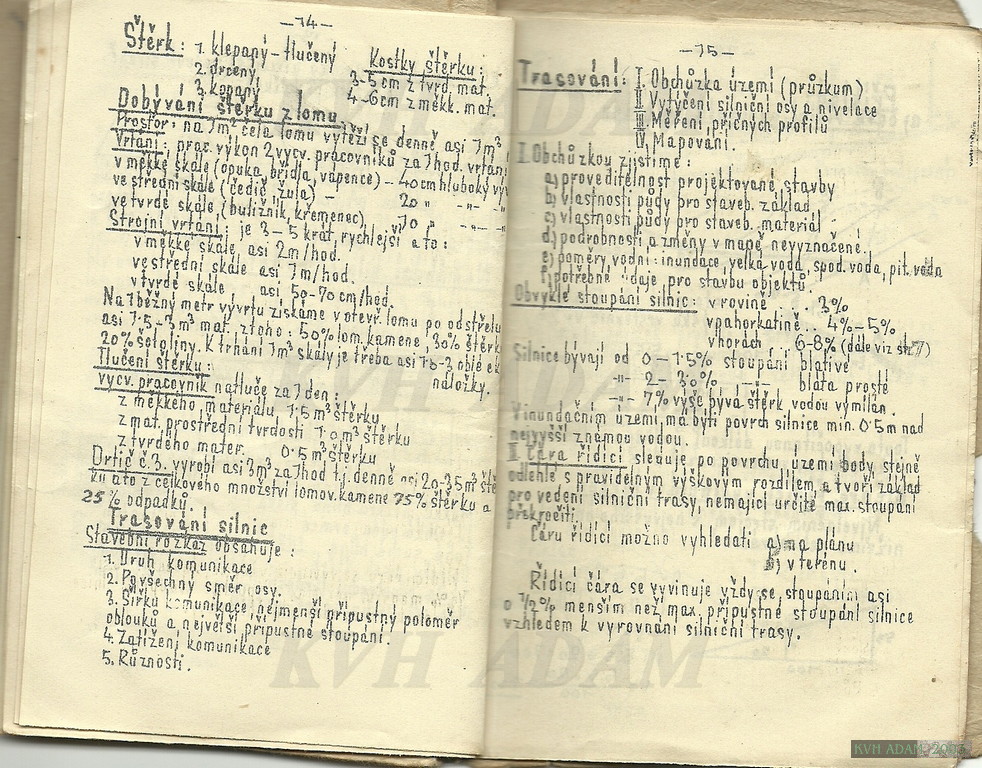 —14—
Štěrk: 1. klepaný-tlučený Kostky štěrku:
2. drcený 3-5cm z tvrd. mat.
3. kopaný 4-6cm z měkk. mat.
Dobývání štěrku z lomu
Prostor: na 1m² čela lomu vytěží se denně asi 1m³
Vrtání: prac. výkon 2 vycv. pracovníků za 1 hod. vrtání
v měkké skále (opuka, břidla, vápenec) - 40cm hluboký
ve střední skále (čedič, žula) - 20 " -"-
ve tvrdé skále (buližník, křemenec) 10 " -"-
Strojní vrtání: je 3-5 krát rychlejší a to:
v měkké skále asi 2m/hod.
ve střední skále asi 1m/hod.
v tvrdé skále asi 50-70 cm/hod.
Na 1 běžný metr vývrtu získáme v otevř. lomu po odstřelu
asi 1·5-3m³ mat. z toho: 50% lom. kamene, 30% štěrk
20% šotoliny. K trhání 1m³ skály je třeba asi
Tlučení štěrku: náložky.
vycv. pracovník natluče za 1 den:
z měkkého materiálu 1·5m³ štěrku
z mat. prostřední tvrdosti 1·0m³ štěrku
z tvrdého mater. 0·5m³ štěrku
Drtič č.3. vyrobí asi 3m³ za 1 hod t.j. denně asi 20-35m³
a to z celkového množství lomov. kamene 75% štěrku a
25% odpadků.
Trasování silnic
Stavební rozkaz obsahuje:
1. Druh komunikace
2. Povšechný směr osy.
3. Šířku komunikace nejmenší přípustný poloměr
oblouků a největší přípustné stoupání.
4. Zatížení komunikace
5. Různosti.
—15—
Trasování: I. Obchůzka území (průzkum)
II. Vytýčení silniční osy a nivelace
III. Měření příčných profilů
IV. Mapování.
I. Obchůzkou zjistíme:
a) proveditelnost projektované stavby
b) vlastnosti půdy pro staveb. základ
c) vlastnosti půdy pro staveb. materiál
d) podrobnosti a změny v mapě nevyznačené.
e) poměry vodní: inundace, velká voda, spod. voda, pit. voda
f) potřebné údaje pro stavbu objektů.
Obvyklé stoupání silnic: v rovině . . 3%
v pahorkatině . . 4%-5%
v horách . . 6-8% (dále viz str. 7)
Silnice bývají od 0-1·5% stoupání blátivé
-"- 2-3·0% -"- bláta prosté
-"- 7% výše bývá štěrk vodou vymílán.
V inundačním území má býti povrch silnice min. 0·5m nad
nejvyšší známou vodou.
II. Čára řídící sleduje po povrchu území body, stejně
odlehlé s pravidelným výškovým rozdílem, a tvoří základ
pro vedení silniční trasy, nemající určité max. stoupání
překročiti.
Čáru řídící možno vyhledati a) na plánu
b) v terénu.
Řídící čára se vyvinuje vždy se stoupáním asi
o 1/2% menším než max. přípustné stoupání silnice
vzhledem k vyrovnání silniční trasy.
KVH ADAM
KVH ADAM
KVH ADAM
KVH ADAM